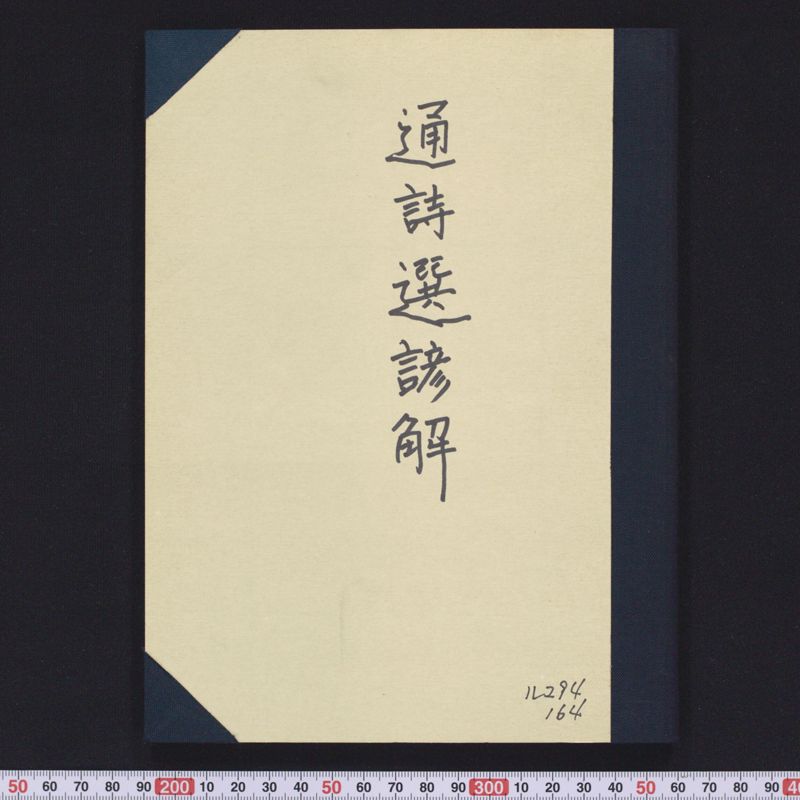 通詩選諺解
ル294
164
50 60 70 80 90 200 10 20 30 40 50 60 70 80 90 300 10 20 30 40 50 60 70 80 90